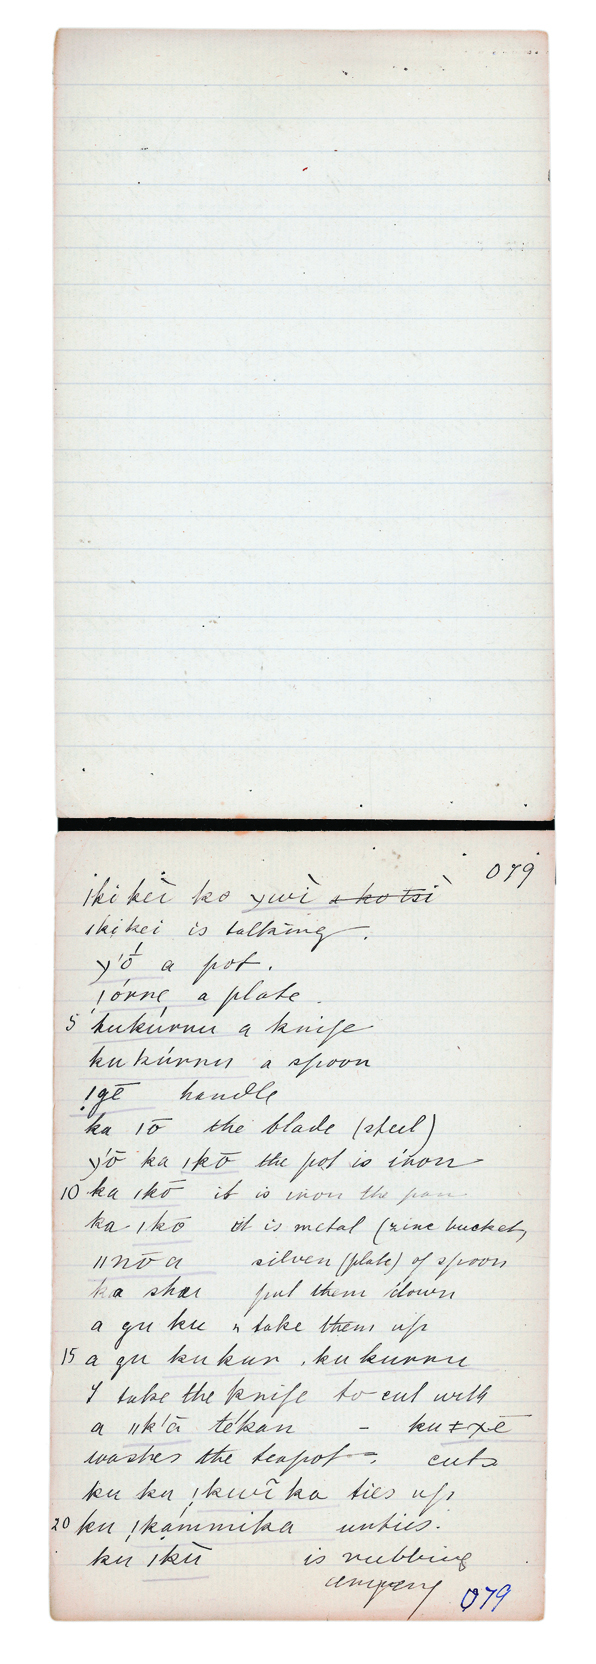 079
ǀkikeĩ ko ɣwĩ s ko tsĩ
ǀkikei is talking.
ɣ'ō a pot.
ǃórne a plate.
5 kukúrnu a knife
kukúrnu a spoon
ǃgē handle
ka ǀō the blade (steel)
ɣ'ō ka ǀkō the pot is iron
10 ka ǀkō it is iron the pan
ka ǀkō it is metal (zinc bucket)
ǁnōa silver (plate) of spoon
ka shar put them down
a gu ku " take them up
15 a gu kukun , kukurnu
I take the knife to cut with
a ǁk'ā tékan - kuǂxē
washes the teapot - cuts
ku ku ǀkwĩ ka ties up
20 ku ǃkámmika unties.
ku ǀkū is rubbing
079